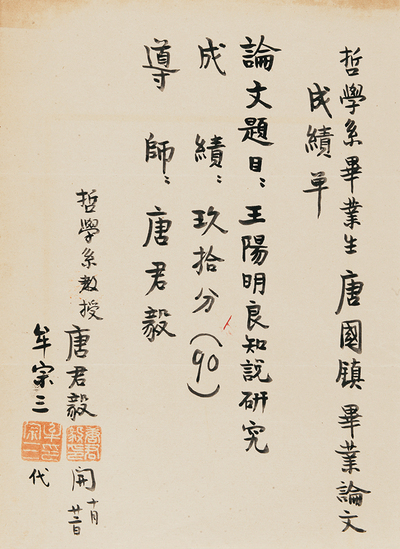 哲學系畢業生唐國鎮畢業論文
成績單
論文題目：王陽明良知說研究
成績：玖拾分（90）
導師：唐君毅
哲學系教授
唐君毅 開 十月廿二日
牟宗三 代
唐君毅印
牟宗三印